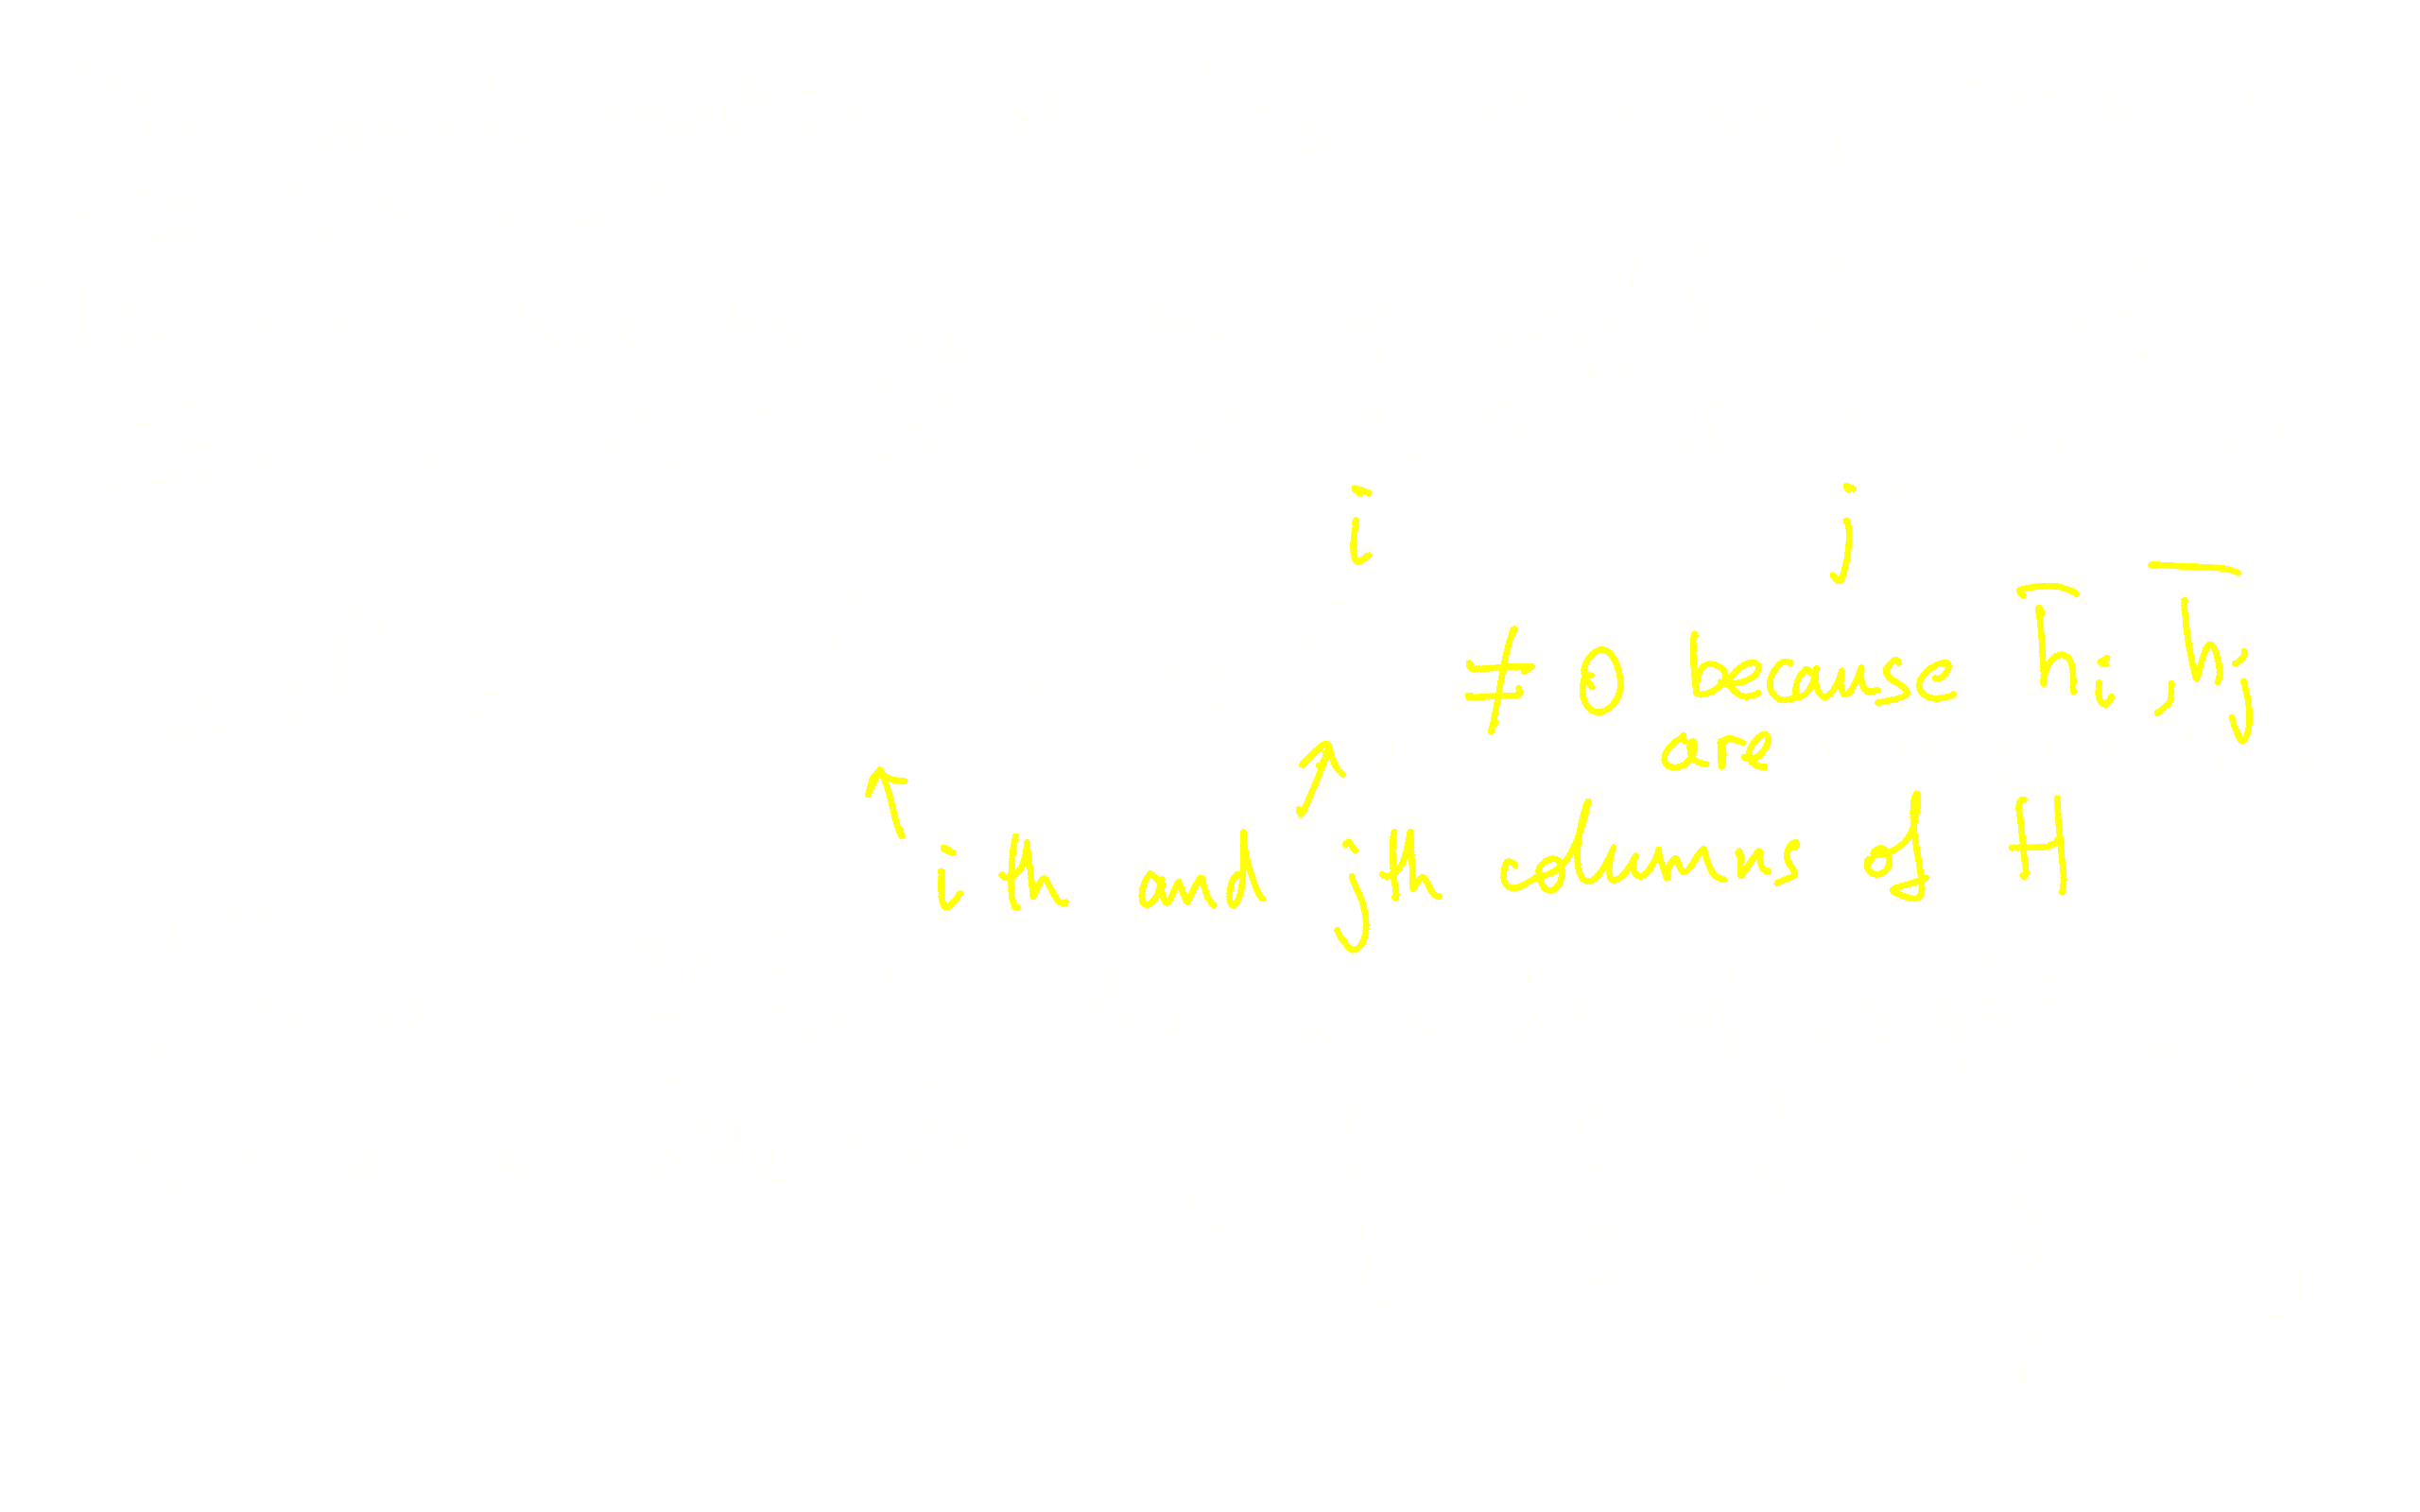 i j
≠ 0 because h̅i, h̅j
are
ith and jth columns of H